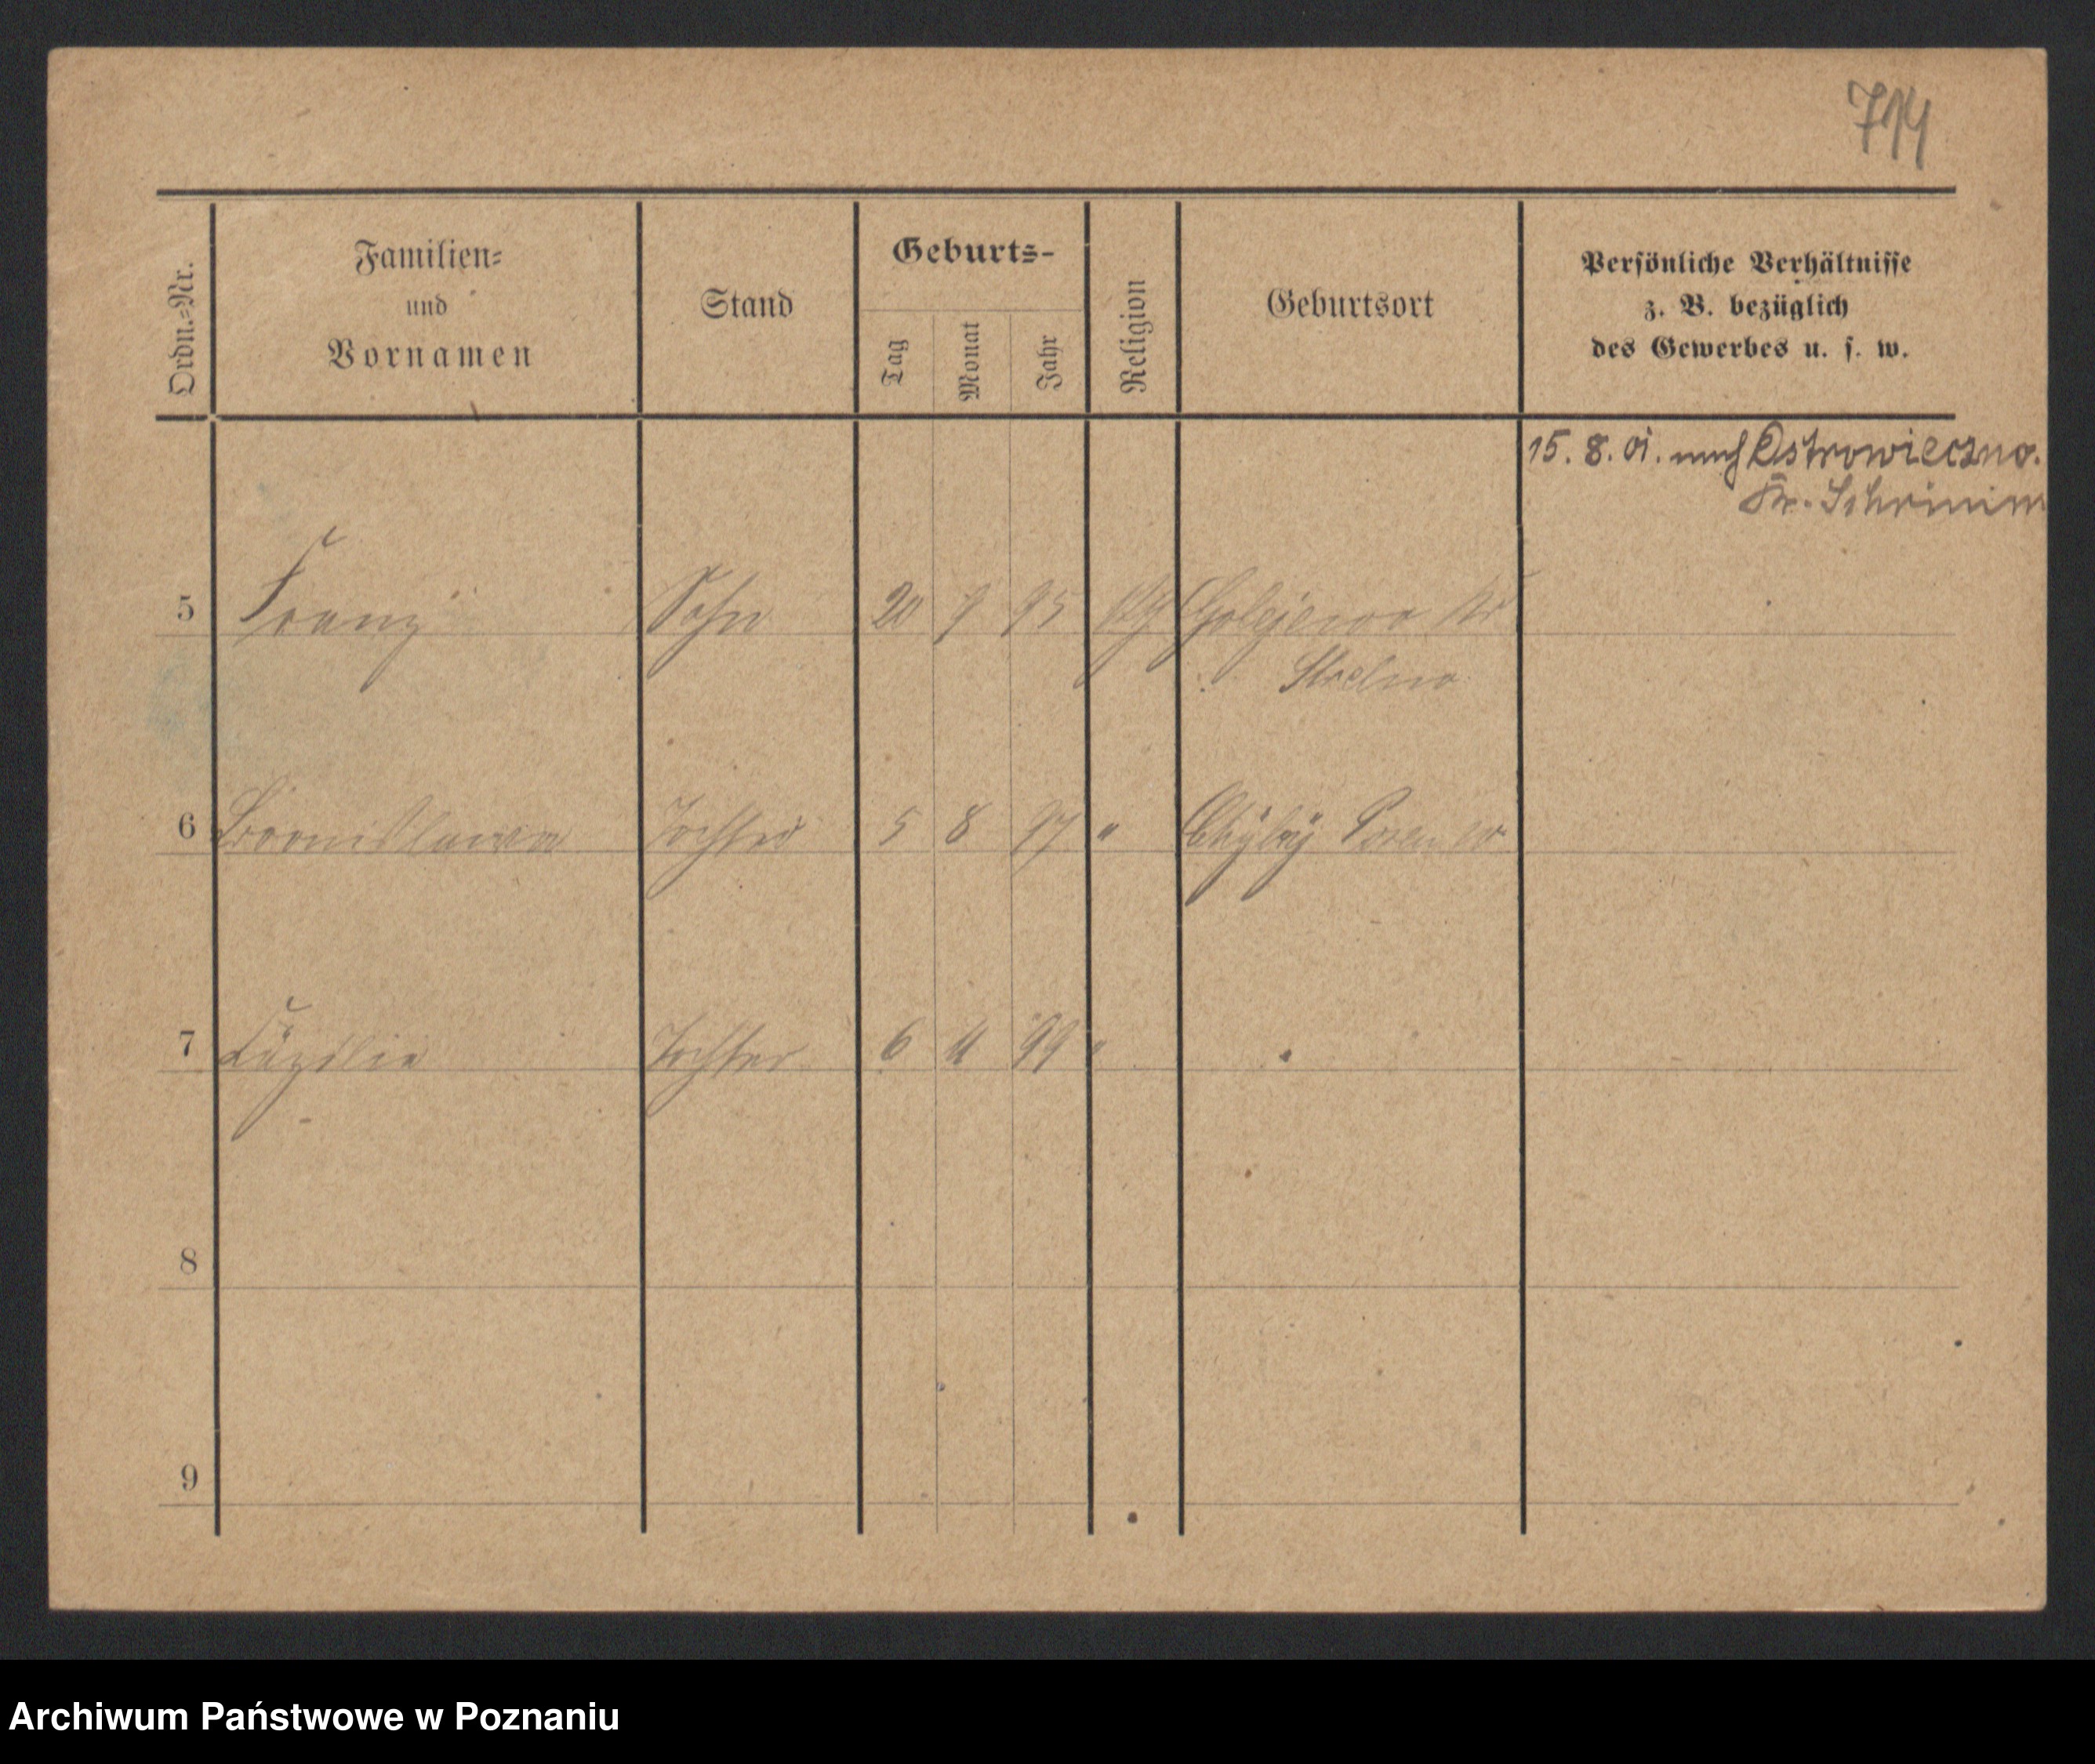 714
Ordn.=Nr.
Familien=
und
Vornamen
Stand
Geburts-
Tag
Monat
Jahr
Religion
Geburtsort
Persönliche Verhältnisse
z. B. bezüglich
des Gewerbes u. s. w.
15. 8. 01. nach Ostrowieczno.
Kr. Schrimm
5 Franz Sohn 20 9 95 Golejewo Kr
Strelno
6 Bronislawa Tochter 5 8 97 "
7 Cäzilie Tochter 6 11 99 "
8
9
Archiwum Państwowe w Poznaniu